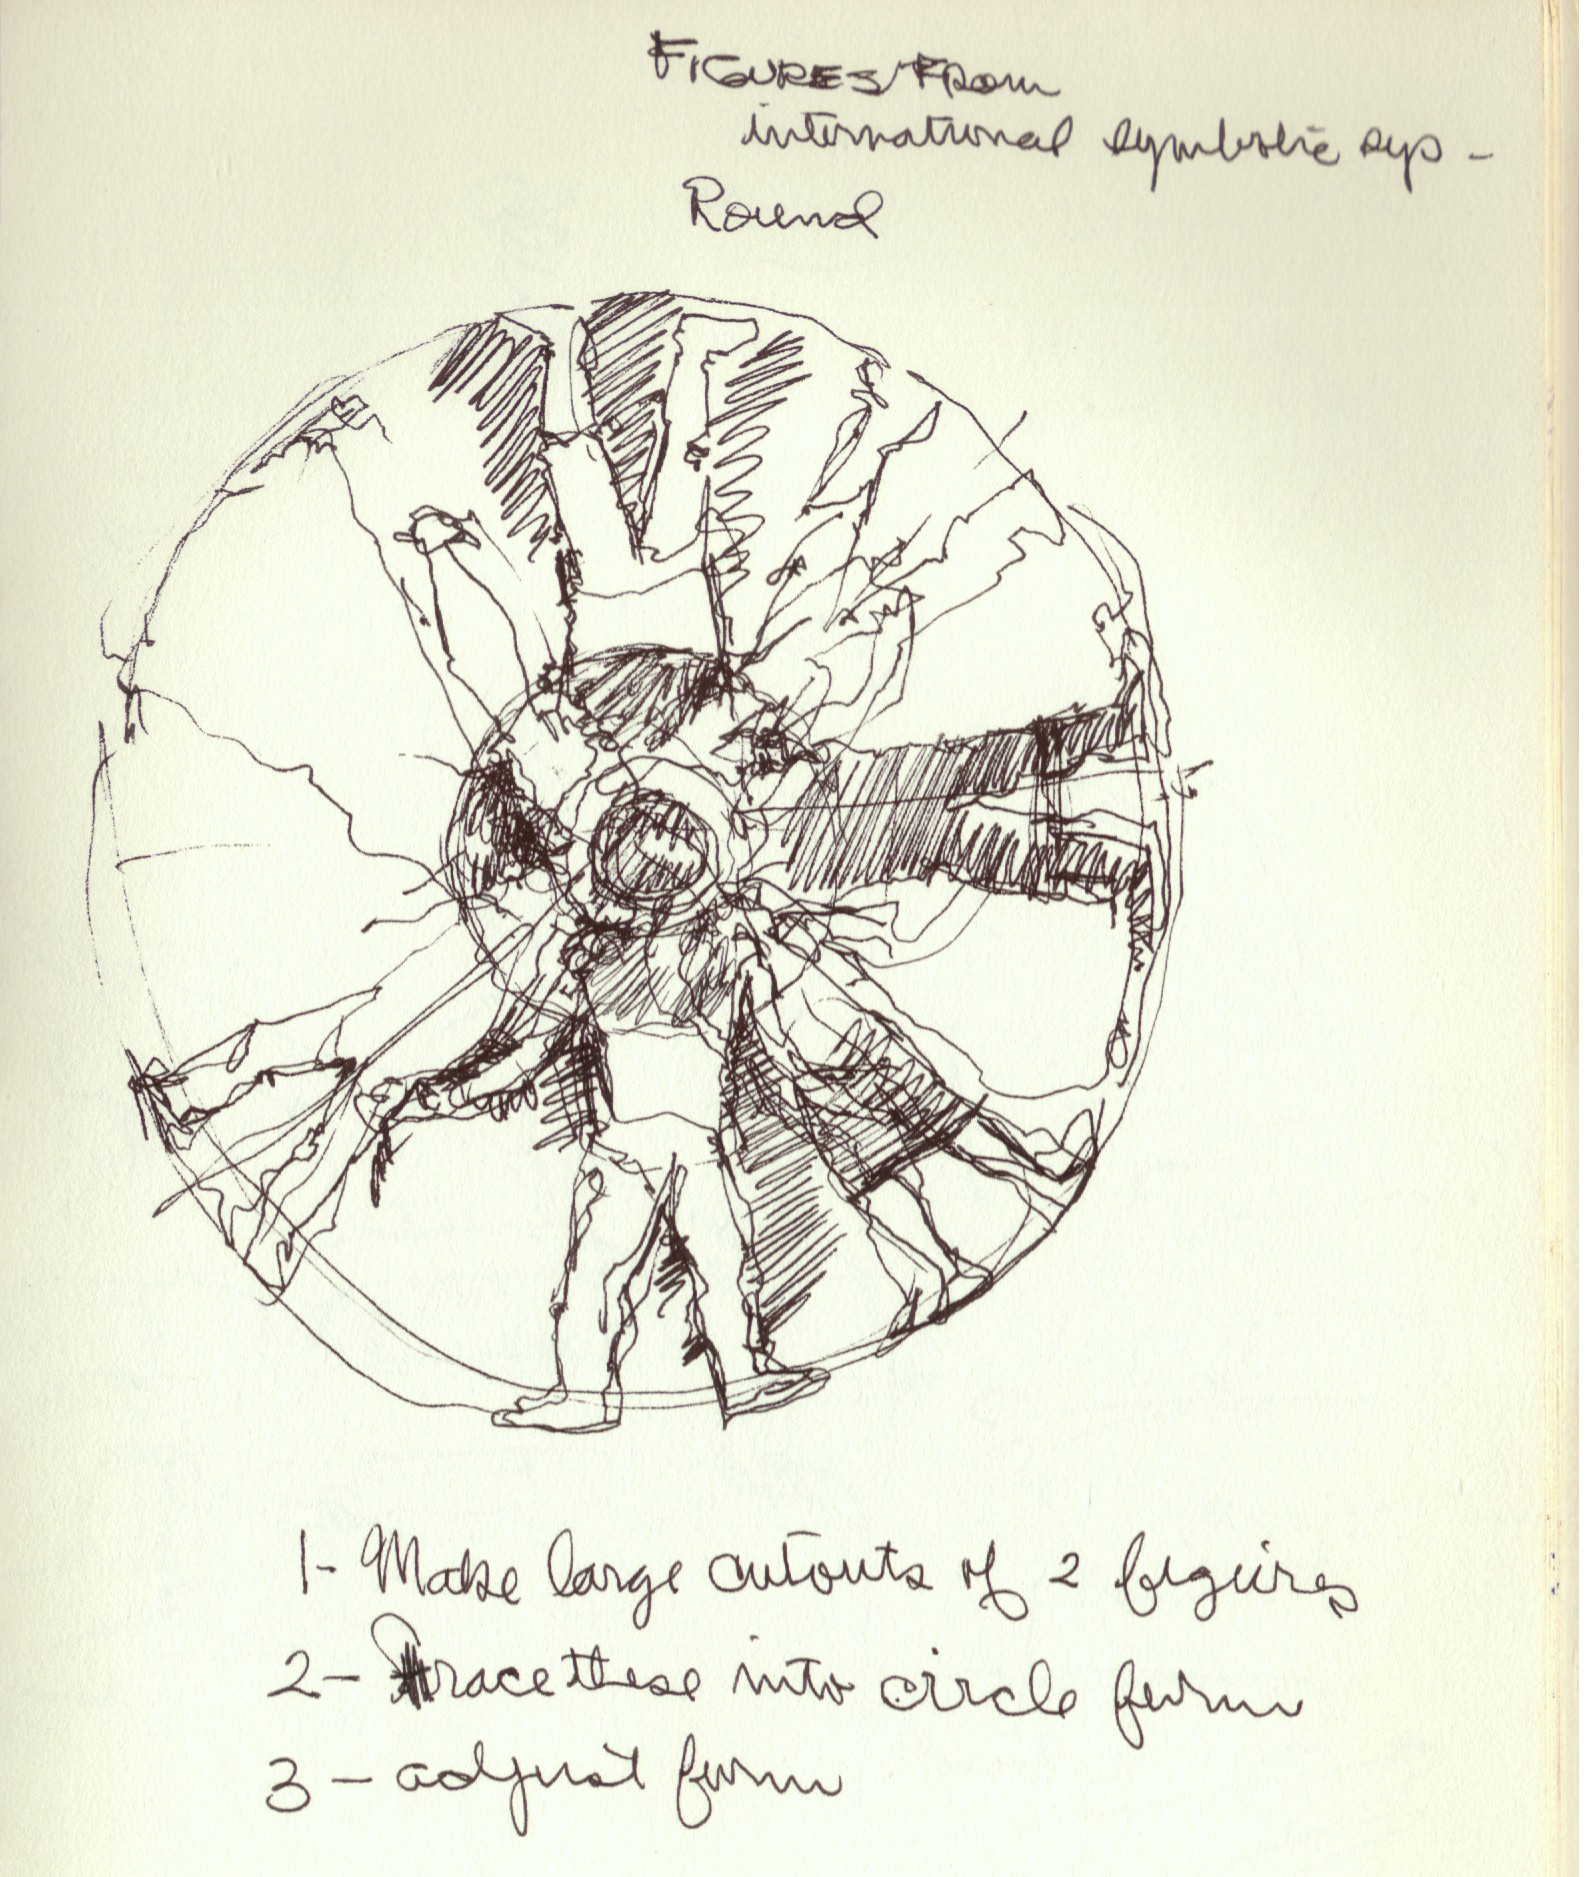 FIGURES FROM
international symbolic sys -
Round
1- Make large cutouts of 2 figures
2- Trace these into circle form
3- adjust form